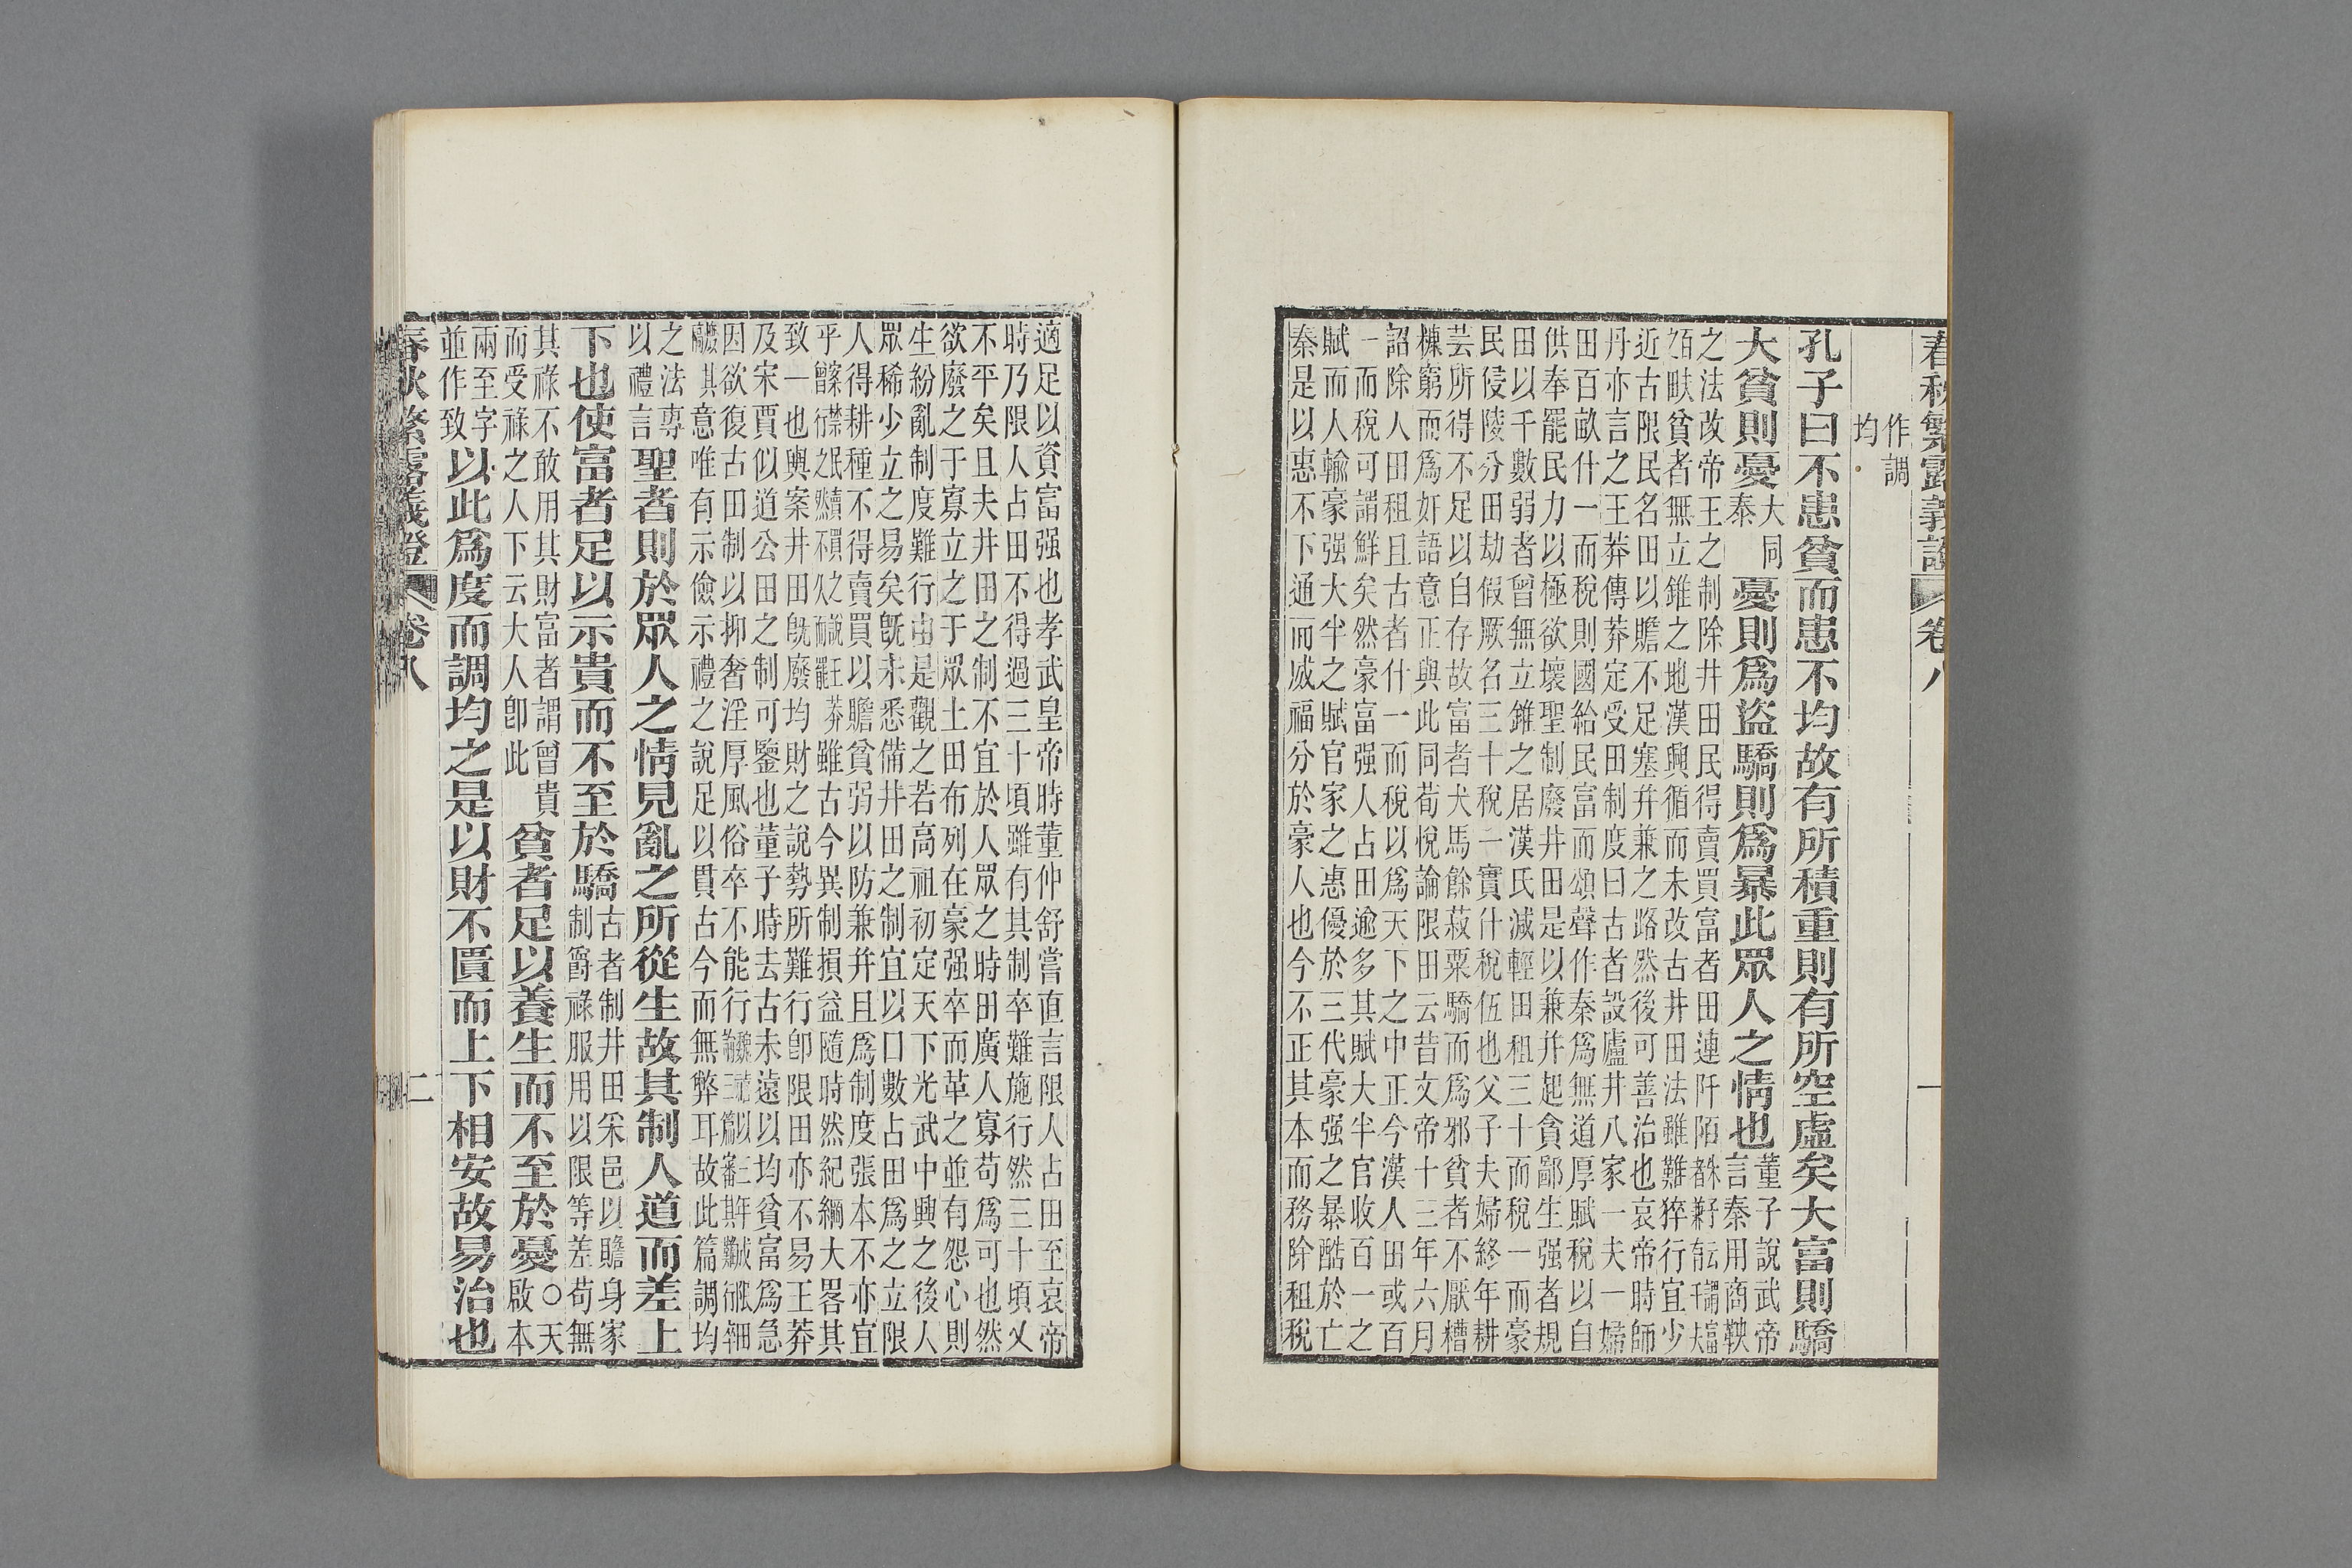 春秋繁露義證 卷八 一
作調
均
孔子曰不患貧而患不均故有所積重則有所空虛矣大富則驕
大貧則憂 大同 秦 憂則爲盜驕則爲暴此眾人之情也 董子說武帝 言秦用商鞅
之法改帝王之制除井田民得賣買富者田連阡陌
貧者無立錐之地漢興循而未改古井田法雖難猝行宜少
近古限民名田以贍不足塞并兼之路然後可善治也哀帝時師
丹亦言之王莽傳莽定受田制度曰古者設廬井八家一夫一婦
田百畝什一而稅則國給民富而頌聲作秦爲無道厚賦稅以自
供奉罷民力以極欲壞聖制廢井田是以兼并起貪鄙生强者規
田以千數弱者曾無立錐之居漢氏減輕田租三十而稅一而豪
民侵陵分田劫假厥名三十稅一實什稅伍也父子夫婦終年耕
芸所得不足以自存故富者犬馬餘菽粟驕而爲邪貧者不厭糟
糠窮而爲奸語意正與此同荀悅論限田云昔文帝十三年六月
詔除人田租且古者什一而稅以爲天下之中正今漢人田或百
一而稅可謂鮮矣然豪富强人占田逾多其賦大半官收百一之
賦而人輸豪强大半之賦官家之惠優於三代豪强之暴酷於亡
秦是以惠不下通而威福分於豪人也今不正其本而務除租稅
適足以資富强也孝武皇帝時董仲舒嘗直言限人占田至哀帝
時乃限人占田不得過三十頃雖有其制卒難施行然三十頃又
不平矣且夫井田之制不宜於人眾之時田廣人寡苟爲可也然
欲廢之于寡立之于眾土田布列在豪强卒而革之並有怨心則
生紛亂制度難行由是觀之若高祖初定天下光武中興之後人
眾稀少立之易矣旣未悉備井田之制宜以口數占田爲之立限
人得耕種不得賣買以贍貧弱以防兼并且爲制度張本不亦宜
乎 雖古今異制損益隨時然紀綱大畧其
致一也輿案井田旣廢均財之說勢所難行卽限田亦不易王莽
及宋賈似道公田之制可鑒也董子時去古未遠以均貧富爲急
因欲復古田制以抑奢淫厚風俗卒不能行
其意唯有示儉示禮之說足以貫古今而無弊耳故此篇調均
之法專 以禮言 聖者則於眾人之情見亂之所從生故其制人道而差上
下也使富者足以示貴而不至於驕 古者制井田采邑以贍身家 制爵祿服用以限等差苟無
其祿不敢用其財富者謂曾貴 而受祿之人下云大人卽此 貧者足以養生而不至於憂 ○天 啟本
兩至字 並作致 以此爲度而調均之是以財不匱而上下相安故易治也
春秋繁露義證 卷八 二